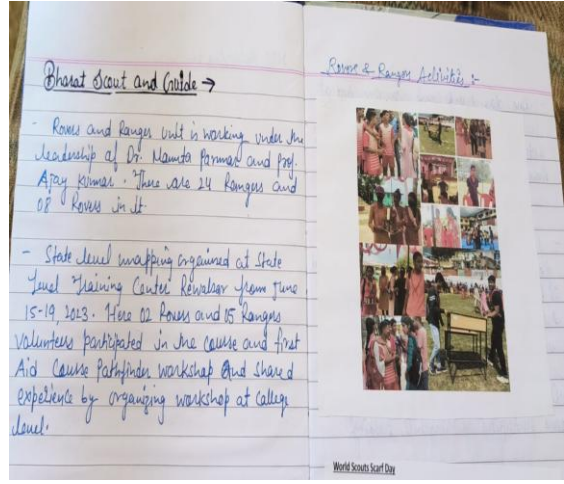 Bharat Scout and Guide →
- Rovers and Ranger Unit is working under the
leadership of Dr. Mamta Parmar and prof.
Ajay Kumar. There are 24 Rangers and
08 Rovers in it.
- State level mapping organised at State
Level Training Center Rewalsar from June
15-19, 2023. Here 02 Rovers and 05 Rangers
volunteers participated in the course and first
Aid Course Pathfinder workshop and shared
experience by organizing workshop at college
level.
Rovers & Rangers Activities :-
World Scouts Scarf Day